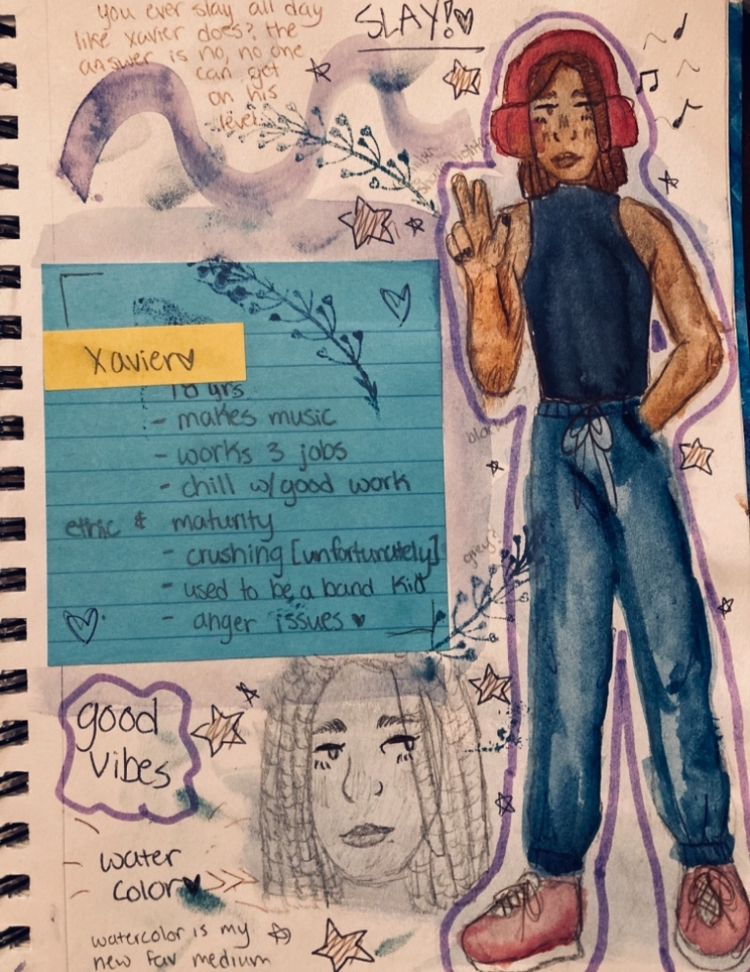 you ever slay all day
like Xavier does? the
answer is no, no one
can get
on his
level
SLAY!
Xavier
18 yrs
- makes music
- works 3 jobs
- chill w/good work
ethic & maturity
- crushing [unfortunately]
- used to be a band kid
- anger issues
grey?
good
vibes
water
color
watercolor is my
new fav medium